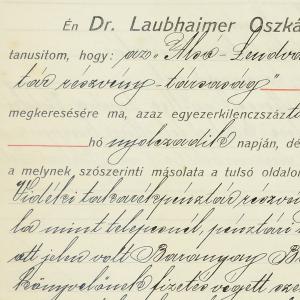 Én Dr. Laubhaimer Oszká
tanusitom, hogy: az "Alsó-Lendva
tár részvény-társaság"
megkeresésére ma, azaz egyezerkilenczszázt
hó nyolczadik napján, dé
a melynek szószerinti másolata a tulsó oldalo
Vidéki takarékpénztár részvé
la mint telepesnél, pénztári
ott jelen volt Baranyay B
könyvelőnek fizetés végett sze